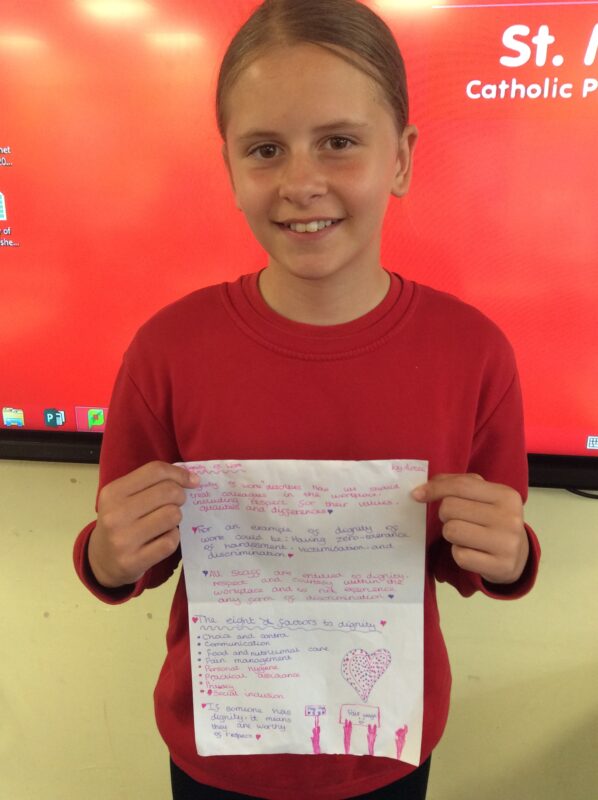 St.
Catholic P
20...
of
she...
P
Dignity of work
by
Dignity of work" describes how we should
treat colleagues in the workplace,
including respect for their values,
and differences
For an example of dignity of
work could be: Having zero-tolerance
of harassment, victimisation, and
discrimination.
All staff are entitled to dignity,
respect and courtesy within the
workplace and to not experience
any form of discrimination
The eight factors to dignity
Choice and control
Communication
Food and nutritional care
Pain management
Personal hygiene
Practical assistance
Privacy
Social inclusion
If someone has
dignity, it means
they are worthy
of respect.